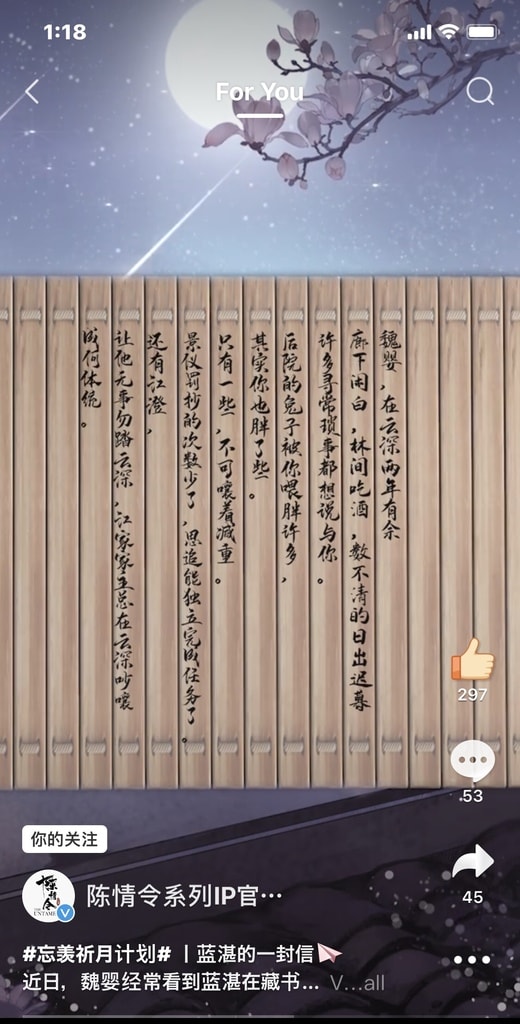 1:18
For You
魏婴，在云深两年有余
廊下闲白，林间吃酒，数不清的日出迟暮
许多寻常琐事都想说与你。
后院的兔子被你喂胖许多，
其实你也胖了些。
只有一些，不可嚷着减重。
景仪罚抄的次数少了，思追能独立完成任务了。
还有江澄，
让他无事勿踏云深，江家家主总在云深吵嚷
成何体统。
297
53
45
你的关注
陈情令
THE UNTAMED
陈情令系列IP官…
#忘羡祈月计划#丨蓝湛的一封信
近日，魏婴经常看到蓝湛在藏书... V...all